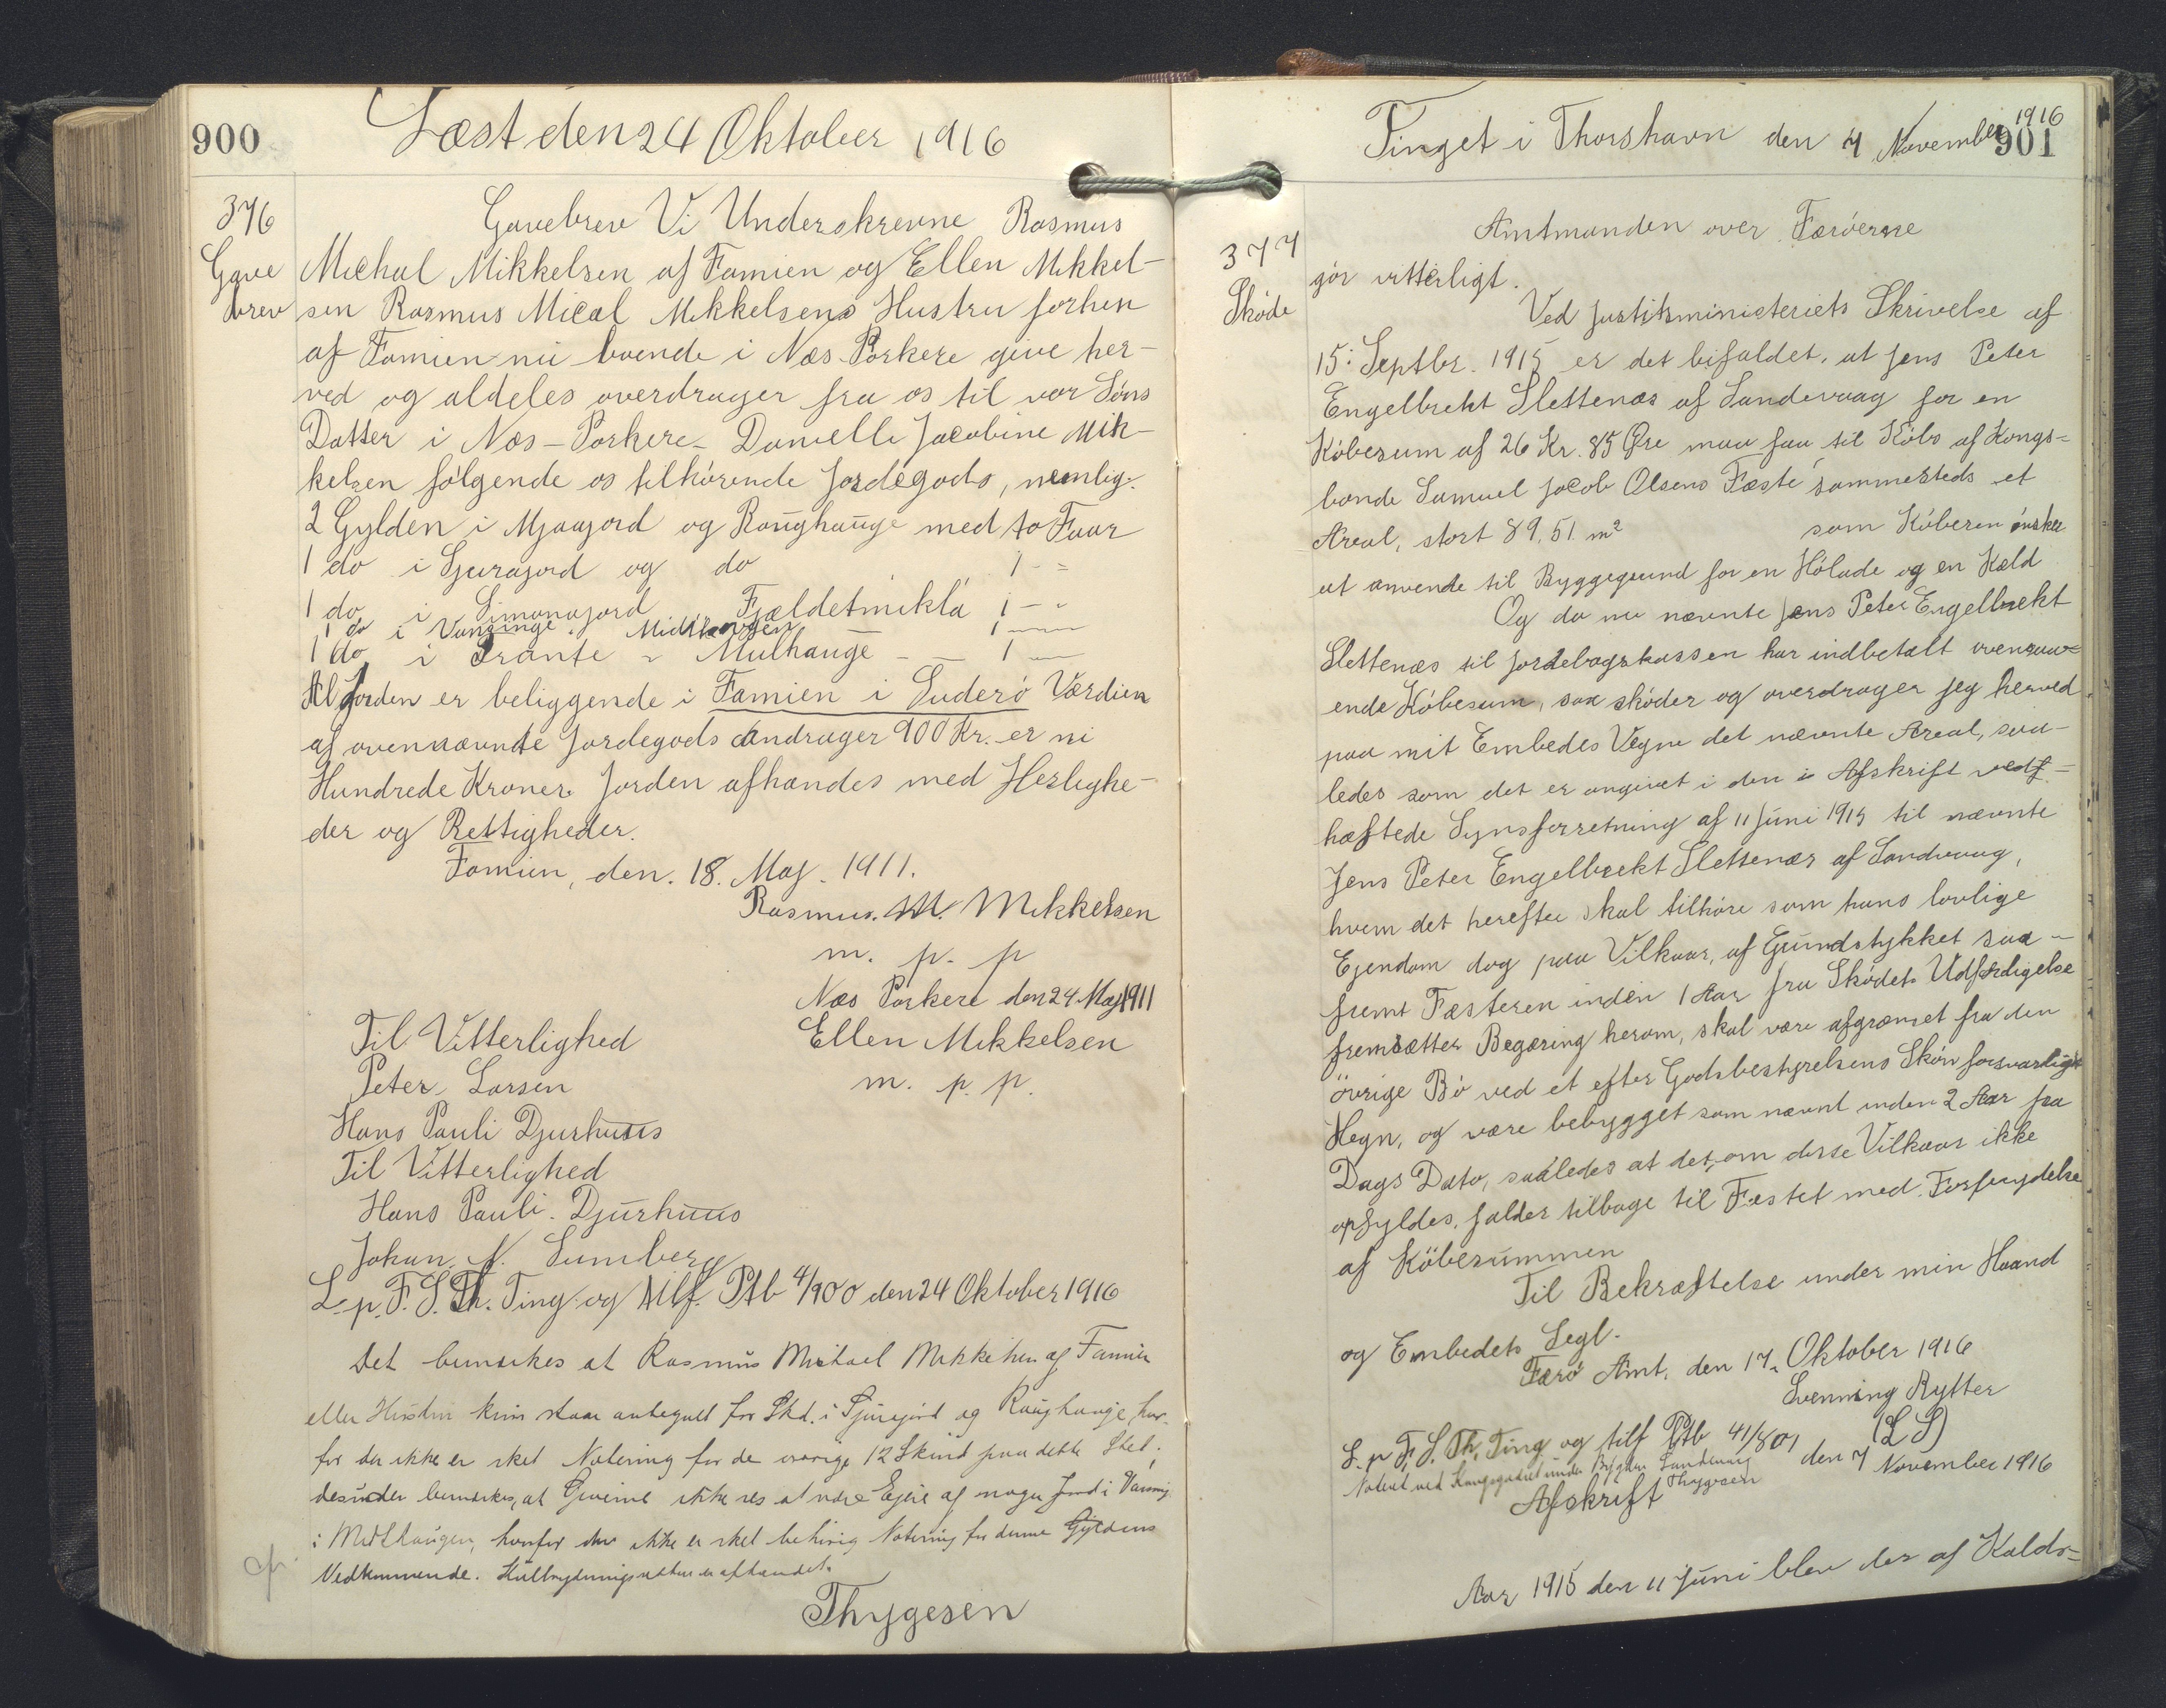 900
Læst den 24 Oktober 1916
376
Gave
brev
Gavebrev Vi Underskrevne Rasmus
Michal Mikkelsen af Famien og Ellen Mikkel-
sen Rasmus Mical Mikkelsens Hustru forhen
af Famien nu boende i Næs-Porkere give her-
ved og aldeles overdrager fra os til vor Söns
Datter i Næs-Porkere Danielle Jacobine Mik-
kelsen fölgende os tilhörende Jordegods, nemlig:
2 Gylden i Mjaajord og Raughauge med to Faar
1 do i Gjurajord og do 1 - -
1 do i Simonajord Fjeldetmikla 1 - -
1 do i Vaninge Midthaugen 1
1 do i Trante - Mulhauge 1
Al Jorden er beliggende i Famien i Suderö Værdien
af ovennævnte Jordegods andrager 900 Kr. er ni
Hundrede Kroner. Jorden afhændes med Herlighe-
der og Rettigheder.
Famien, den. 18. Maj. 1911.
Rasmus. M. Mikkelsen
m. p. p
Næs Porkere den 24 Maj 1911
Til Vitterlighed Ellen Mikkelsen
Peter Larsen m. p. p.
Hans Pauli Djurhuus
Til Vitterlighed
Hans Pauli. Djurhuus
Johan. N. Sumberg
L. p. F. S. Th. Ting og tilf. Ptb 4/900 den 24 Oktober 1916
Det bemærkes at Rasmus Michael Mikkelsen af Famien
eller Hustru kun staar antegnet for Skd. i Gjurajord og Raughauge, hvor-
for der ikke er sket Notering for de övrige 12 Skind paa dette Sted,
desuden bemærkes, at Giverne ikke ses at være Ejere af nogen Jord i Vaning
i Midthaugen, hvorfor der ikke er sket Notering for denne Gyldens
Vedkommende.
Thygesen
1916
Tinget i Thorshavn den 7 November
901
377
Sköde
Amtmanden over Færöerne
gör vitterligt.
Ved Justitsministeriets Skrivelse af
15: Septbr. 1915 er det bifaldet, at Jens Peter
Engelbrekt Slettenæs af Sandevaag for en
Köbesum af 26 Kr. 85 Øre maa faa til Köbs af Kongs-
bonde Samuel Jacob Olsens Fæste sammesteds et
Areal, stort 89,51 m² som Köberen önsker
at anvende til Byggegrund for en Hölade og en Kæld
Og da nu nævnte Jens Peter Engelbrekt
Slettenæs til Jordebogskassen har indbetalt ovennæv-
ende Köbesum, saa sköder og overdrager jeg herved
paa mit Embedes Vegne det nævnte Areal, saa-
ledes som det er angivet i den i Afskrift vedf-
hæftede Synsforretning af 11 Juni 1915 til nævnte
Jens Peter Engelbrekt Slettenæs af Sandevaag,
hvem det herefter skal tilhöre som hans lovlige
Ejendom dog paa Vilkaar, af Grundstykket saa-
fremt Fæsteren inden 1 Aar fra Sködets Udfærdigelse
fremsætter Begæring herom, skal være afgrænset fra den
övrige Bö ved et efter Godsbestyrelsens Skön forsvarligt
Hegn, og være bebygget som nævnt inden 2 Aar fra
Dags Dato, saaledes at det, om disse Vilkaar ikke
opfyldes, falder tilbage til Fæstet med Forbrydelse
af Köbesummen
Til Bekræftelse under min Haand
og Embedets Segl.
Færö Amt, den 17. Oktober 1916
Svenning Rytter
(L S)
L. p F. S. Th. Ting og tilf Ptb 41/801 den 7 November 1916
Noteret ved Kongsgodset under Bygden Sandevaag
Thygesen
Afskrift
Aar 1915 den 11 Juni blev der af Kalds-